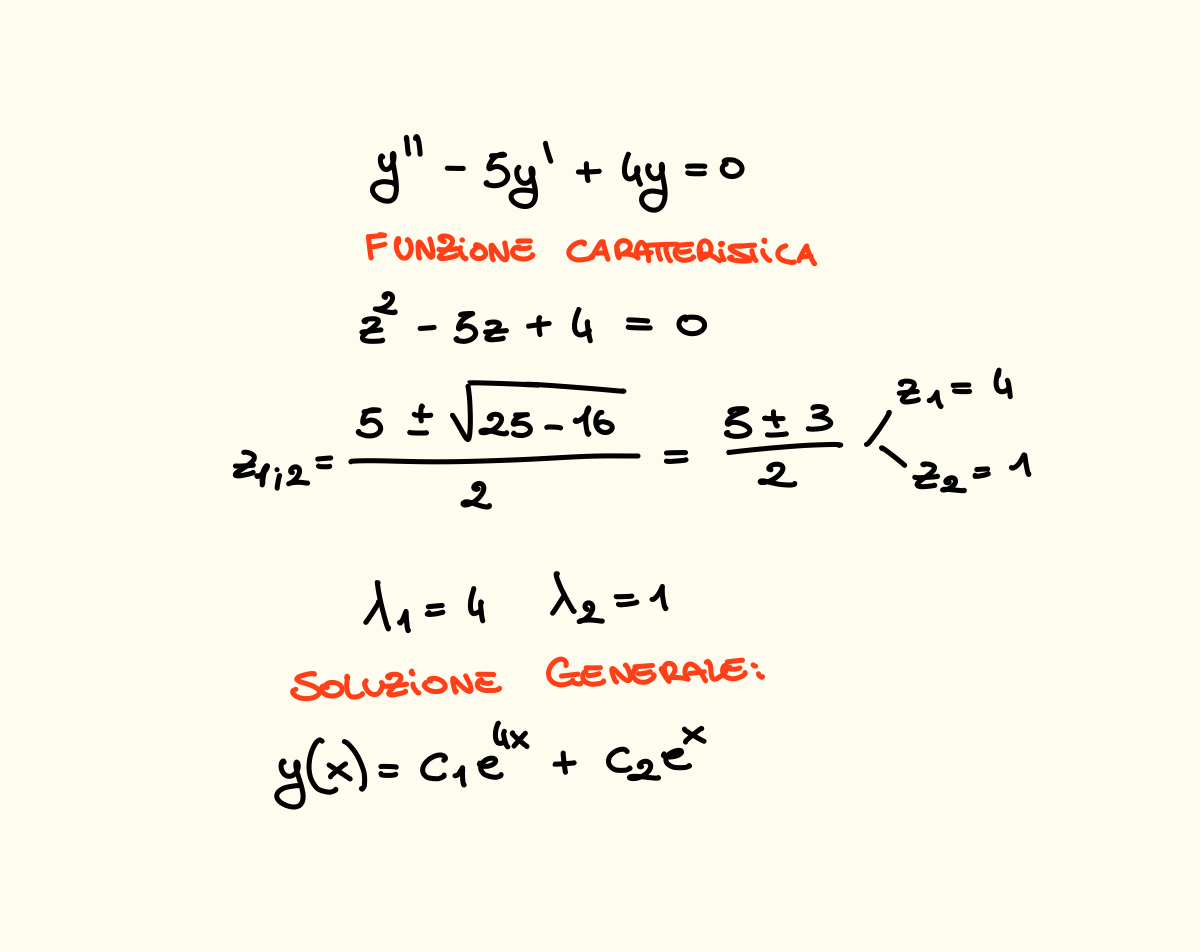 y'' - 5y' + 4y = 0
FUNZIONE CARATTERISTICA
z² - 5z + 4 = 0
z₁;₂ = (5 ± √(25 - 16))/2 = (5 ± 3)/2 < z₁ = 4
z₂ = 1
λ₁ = 4 λ₂ = 1
SOLUZIONE GENERALE:
y(x) = c₁e⁴ˣ + c₂eˣ